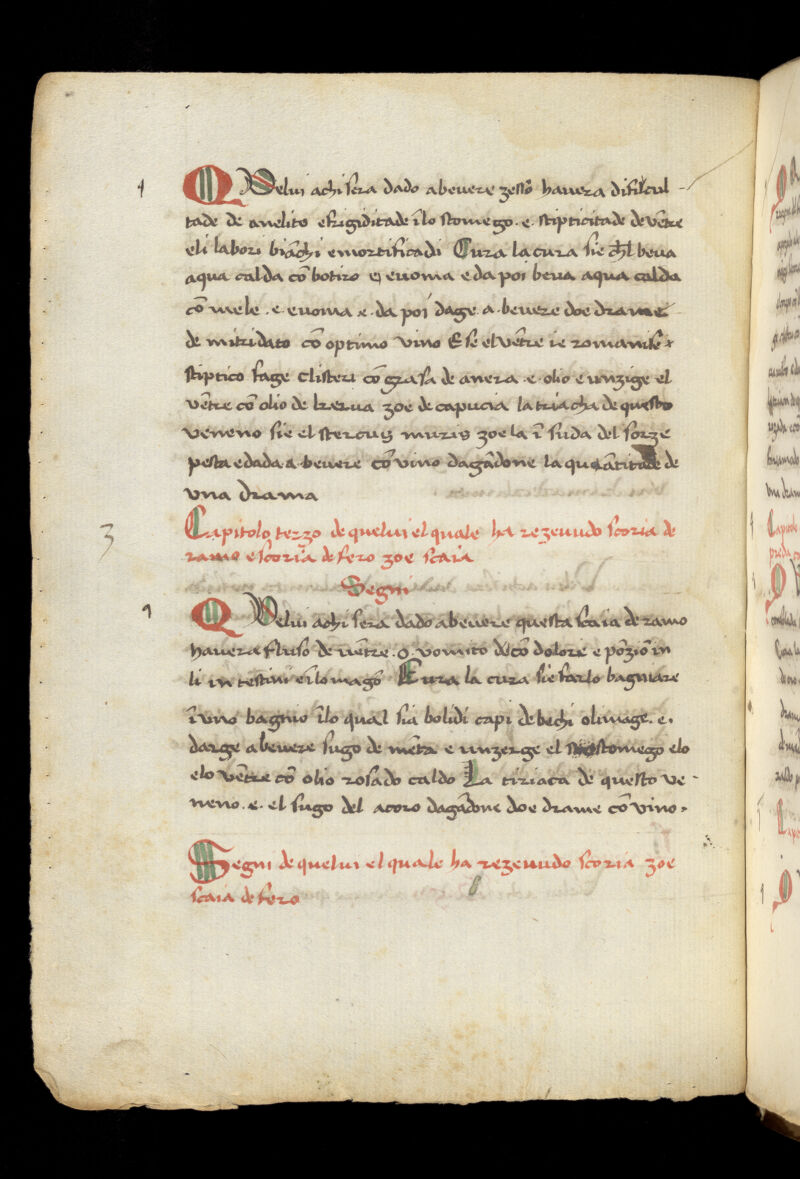 QVelui achi sera dado abevere zesso havera dificul-
tade de anelito e frigiditade ĩlo stomego · e · stipticitade de vẽtre
eli labori biãchi e mortificadi Cura la cura sie chl beva
aqua calda cõ botiro ⁊ evoma e da poi beva aqua calda
cõ mele · e · evoma · e · da poi dage · a · bevere doe drame
de mitridato cõ optimo vino E se el vẽtre ie
stiptico fage clisteri cõ grasa de anera · e · olio e unzige el
vẽtre cõ olio de zoe de capucia la triacha de questo
veneno sie el stercus muris zoe la ĩ suda del sorze
pesta e dada a bevere cõ vino dagãdone la quãtitade de
una drama
3 Capitolo terzo de quelui el quale ha rezevudo scoria de
ramo e scoria de fero zoe scaia
Segni
QVelui achi sera dado abevere questa scaia de ramo
havera fluso de vẽtre · o · vomito cõ dolore e põziõ in
li intestini e ĩ lo magõ Cura la cura sie farlo bagniare
ĩ uno bagnio ĩlo qual sia bolidi capi de bechi olimage · e ·
darge abevere sugo de mẽta e unzerge el stomego elo
elo vẽtre cõ olio rosado caldo La tiriaca de questo ve-
neno · e · el sugo del acoro dagãdone doe drame cõ vino
Segni de quelui el quale ha rezevudo scoria zoe
scaia de fero